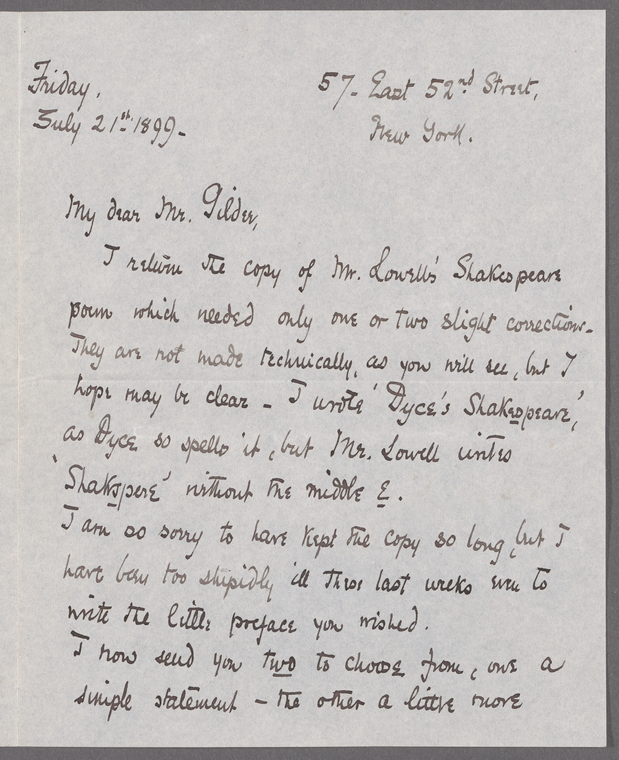 Friday,
57- East 52nd Street,
July 21st 1899-
New York.
My dear Mr. Gilder,
I return the copy of Mr. Lowell's Shakespeare
poem which needed only one or two slight corrections-
They are not made technically, as you will see, but I
hope may be clear - I wrote 'Dyce's Shakespeare,'
as Dyce so spells it, but Mr. Lowell writes
'Shakspere' without the middle E.
I am so sorry to have kept the copy so long, but I
have been too stupidly ill these last weeks even to
write the little preface you wished.
I now send you two to choose from, one a
simple statement - the other a little more